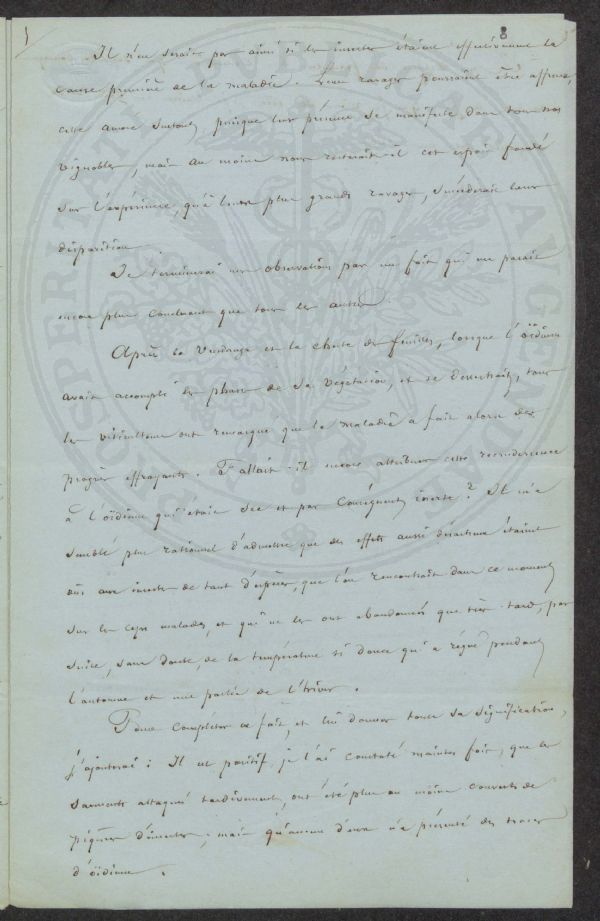 8
Il n'en serait pas ainsi si les insectes étaient effectivement la
cause première de la maladie. Leurs ravages pourraient être affreux,
cette année surtout, puisque leur présence se manifeste dans tous nos
vignobles, mais au moins nous resterait-il cet espoir fondé
sur l'expérience, qu'à leurs plus grands ravages, succèderait leur
disparition.
Je terminerai mes observations par un fait qui me parait
encore plus concluant que tous les autres.
Après la vendange et la chute des feuilles, lorsque l'oïdium
avait accompli les phases de sa végétation, et se desséchait, tous
les viticulteurs ont remarqué que la maladie a fait alors des
progrès effrayants. Fallait-il encore attribuer cette recrudescence
à l'oïdium qui était sec et par conséquent inerte? Il m'a
semblé plus rationnel d'admettre que des effets aussi désastreux étaient
dûs aux insectes de tant d'espèces, que l'on rencontrait dans ce moment
sur les ceps malades, et qui ne les ont abandonnés que très tard, par
suite, sans doute, de la température si douce qui a régné pendant
l'automne et une partie de l'hiver.
Pour compléter ce fait, et lui donner toute sa signification,
j'ajouterai: Il est positif, je l'ai constaté maintes fois, que les
sarments attaqués tardivement, ont été plus ou moins couverts de
piqûres d'insectes; mais qu'aucun d'eux n'a présenté des traces
d'oïdium.
PROSPERITATI PUBLICAE AUGENDAE